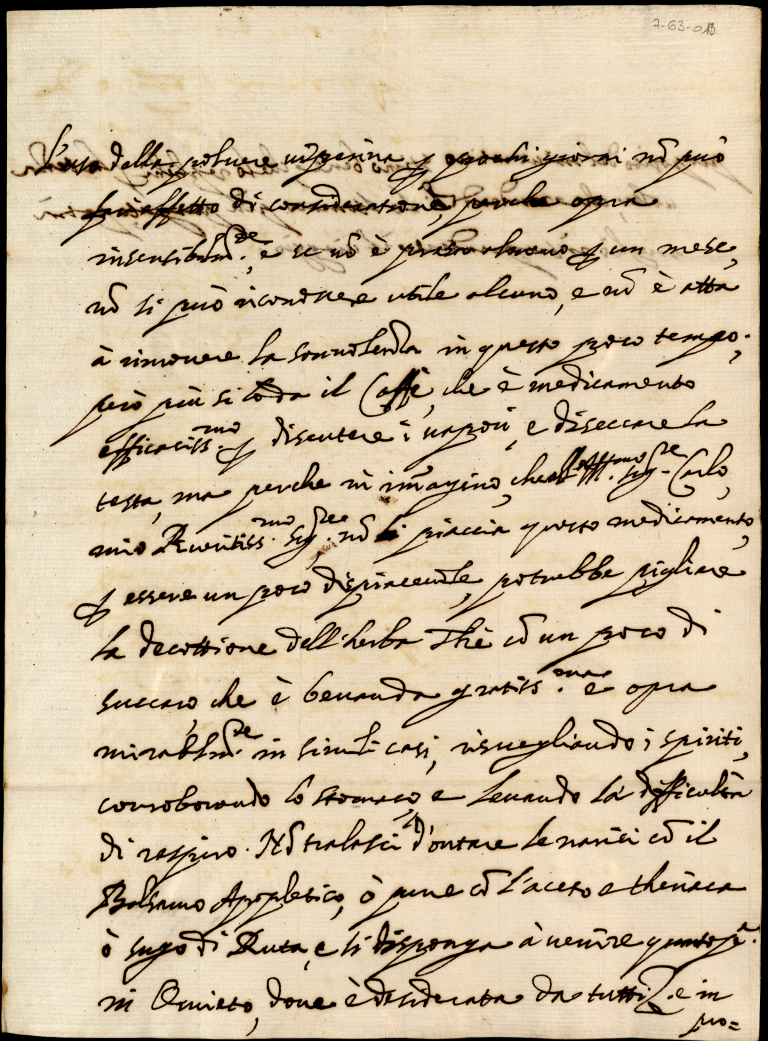 7-63-013
L'uso della poluere uiperina p pochi giorni nõ può
far effetto di consideratione, perche opra
insensibilm.te, e se nõ è preso almeno p un mese,
nõ si può riconoscere utile alcuno, e nõ è atta
à rimouere la sonnolenza in questo poco tempo;
però più si loda il Caffè, che è medicamento
efficaciss.mo p discutere i uapori, e diseccare la
testa, ma perche m'imagino, che all' Sig.re Carlo,
mio Riueritiss.mo Sig.re, nõ li piaccia questo medicamento,
p essere un poco dispiaceuole, potrebbe pigliare
la decottione dell'herba Thè cõ un poco di
succaro che è beuanda gratiss.ma e opra
mirabilm.te in simili casi, risuegliando i spiriti,
corroborando lo stomaco, e leuando la difficoltà
di respiro. Nõ tralasci d'ontare le narici cõ il
Balsamo Apopletico, ò pure cõ l'aceto e theriaca
ò sugo di Ruta, e si disponga à uenire quanto p.a
in Oruieto, doue è desiderata da tutti, e in
pro=